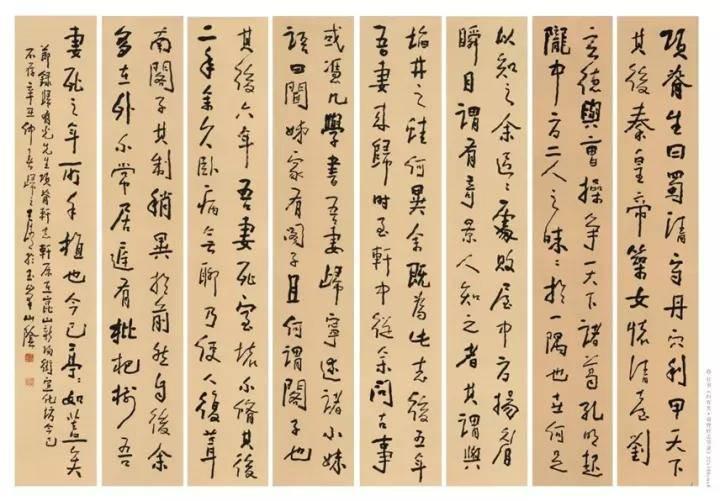 項脊生曰蜀清守丹穴利甲天下
其後秦皇帝築女懷清臺劉
玄德與曹操爭天下諸葛孔明起
隴中方二人之昧〻於一隅也世何足
以知之余區〻處敗屋中方揚眉
瞬目謂有奇景人知之者其謂與
埳井之蛙何異余既為此志後五年
吾妻來歸時至軒中從余問古事
或憑几學書吾妻歸寧述諸小妹
語曰聞姊家有閣子且何謂閣子也
其後六年吾妻死室壞不修其後
二年余久臥病無聊乃使人復葺
南閣子其制稍異於前然自後余
多在外不常居庭有枇杷樹吾
妻死之年所手植也今已亭〻如蓋矣
節錄歸有光先生項脊軒志軒原在崑山新陽街宣化坊今已
不存辛丑仲春於玉峰山陰